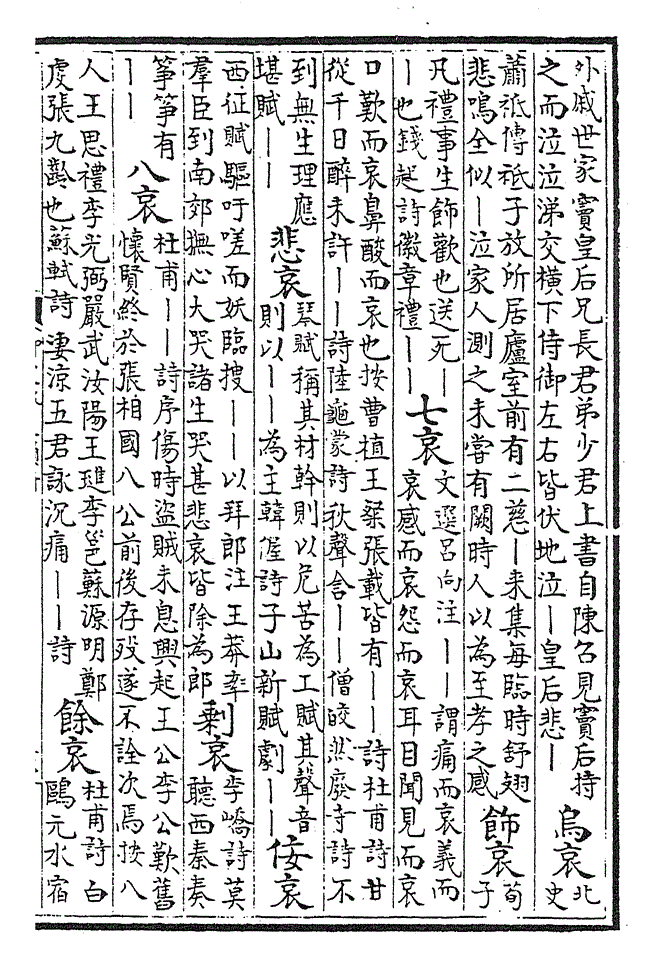 外戚世家竇皇后兄長君弟少君上書自陳召見竇后持
之而泣泣涕交橫下侍御左右皆伏地泣｜皇后悲｜
烏哀
北
史
蕭祗傳祗子放所居廬室前有二慈｜来集每臨時舒翅
悲鳴全似｜泣家人測之未嘗有闕時人以為至孝之感
飾哀
荀
子
凡禮事生飾歡也送死｜
｜也錢起詩徽章禮｜｜
七哀
文選呂向注｜｜謂痛而哀義而
哀感而哀怨而哀耳目聞見而哀
口歎而哀鼻酸而哀也按曹植王粲張載皆有｜｜詩杜甫詩甘
從千日醉未許｜｜詩陸龜蒙詩秋聲含｜｜僧皎然廢寺詩不
到無生理應
堪賦｜｜
悲哀
琴賦稱其材幹則以危苦為工賦其聲音
則以｜｜為主韓偓詩子山新賦劇｜｜
佞哀
西征賦驅吁嗟而妖臨搜｜｜以拜郎注王莽率
羣臣到南郊撫心大哭諸生哭甚悲哀皆除為郎
剩哀
李嶠詩莫
聽西秦奏
箏箏有
｜｜
八哀
杜甫｜｜詩序傷時盜賊未息興起王公李公歎舊
懷賢終於張相國八公前後存殁遂不詮次焉按八
人王思禮李光弼嚴武汝陽王璡李邕蘇源明鄭
虔張九齡也蘇軾詩凄涼五君詠沉痛｜｜詩
餘哀
杜甫詩白
鷗元水宿